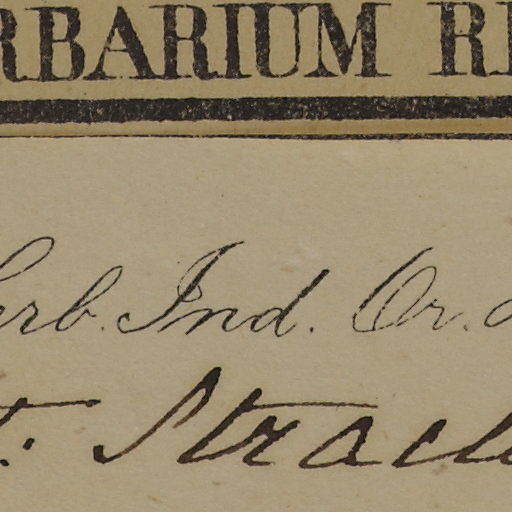 RBARIUM R
erb. Ind. Or.
t. Strach